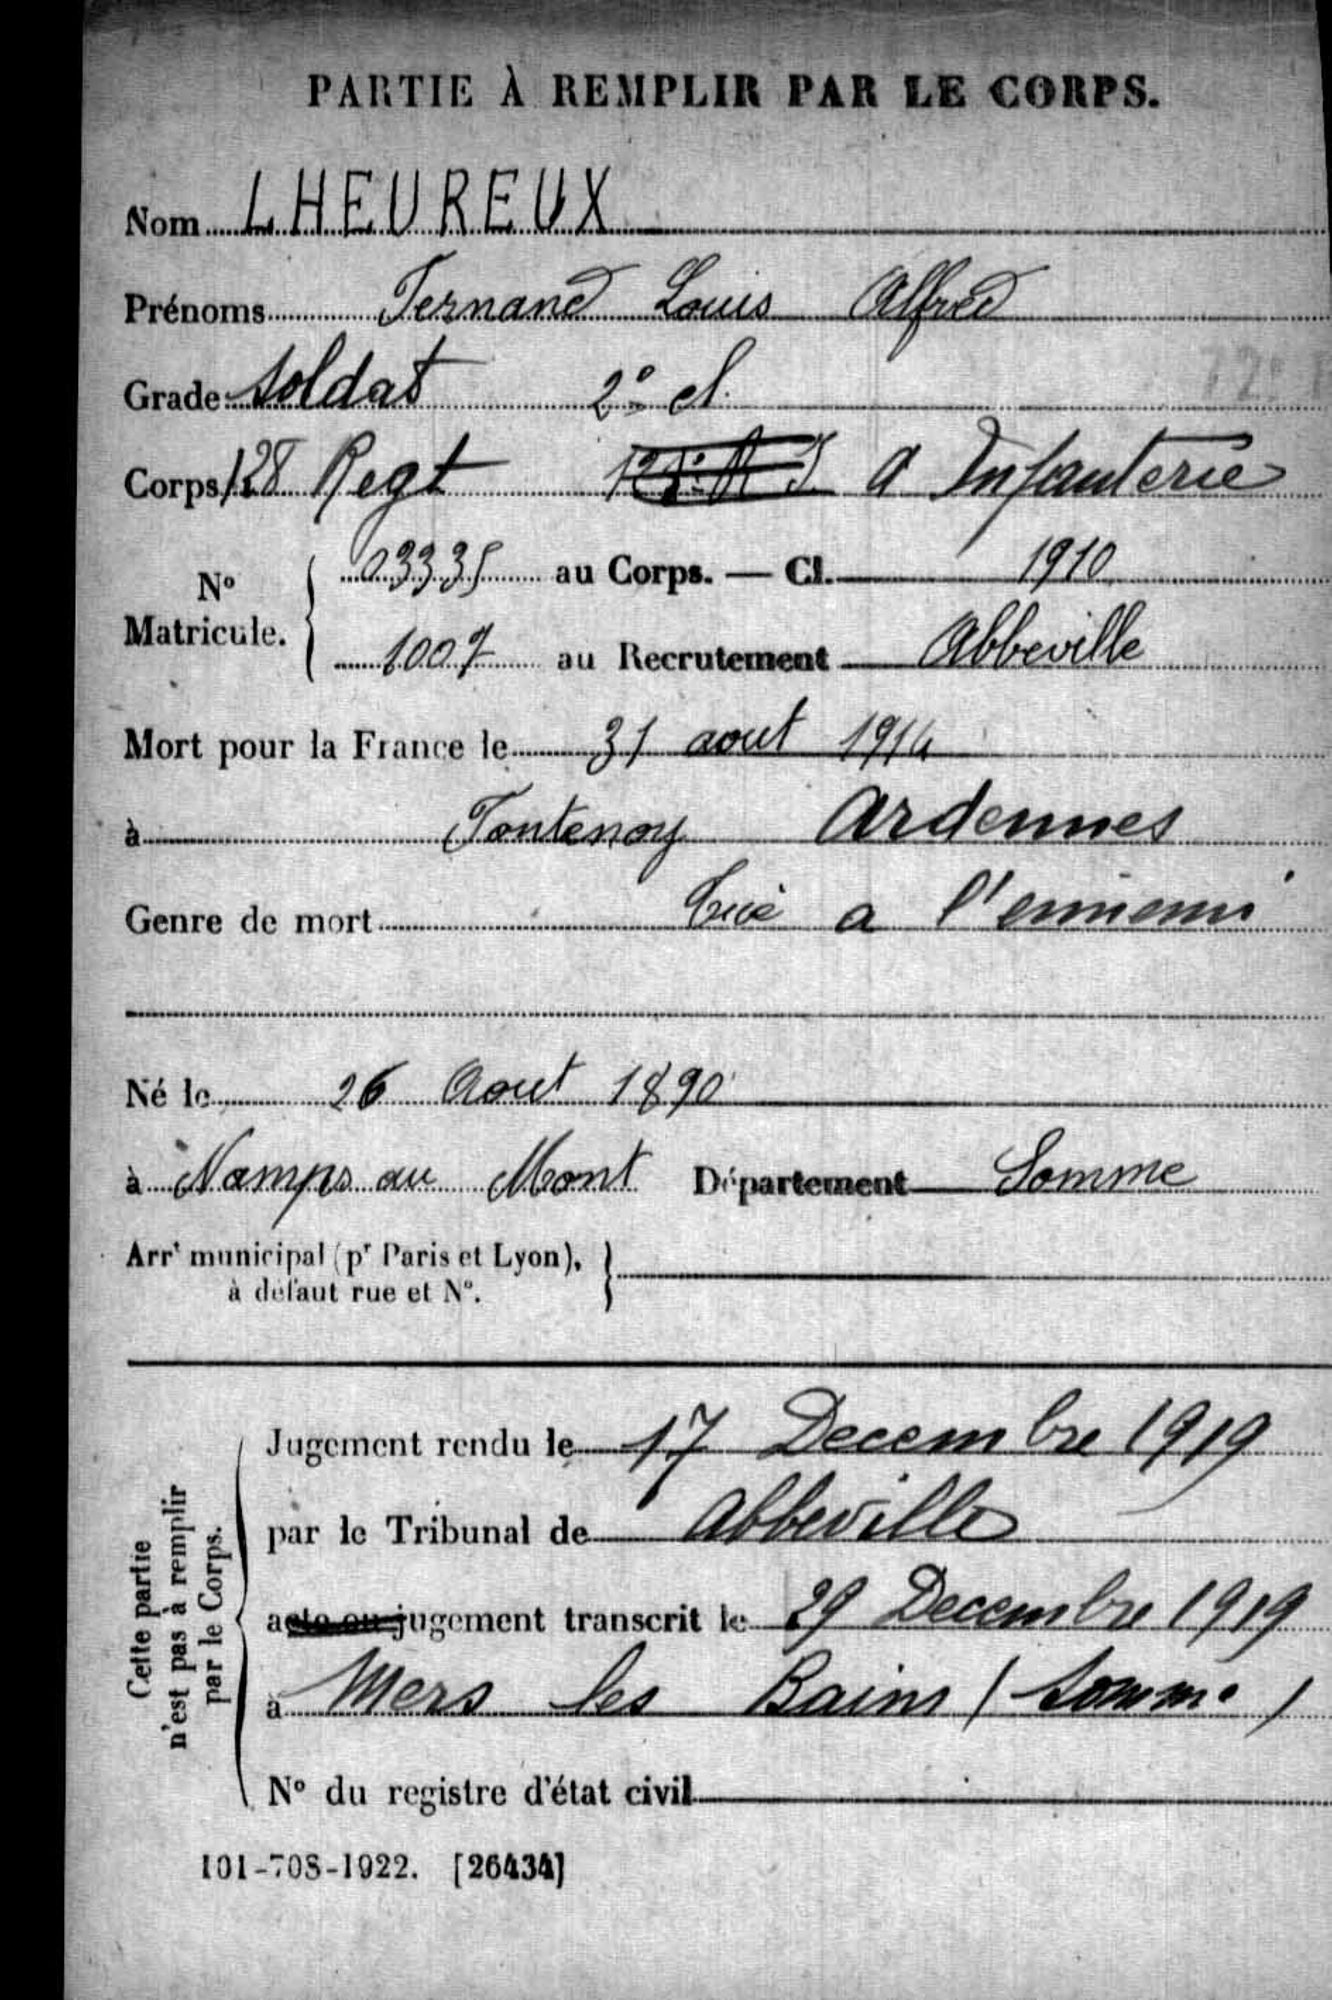 PARTIE À REMPLIR PAR LE CORPS.
Nom LHEUREUX
Prénoms Fernand Louis Alfred
Grade soldat 2e cl.
Corps 128 Regt d Infanterie
No Matricule. 03335 au Corps. — Cl. 1910
1007 au Recrutement Abbeville
Mort pour la France le 31 aout 1914
à Fontenoy Ardennes
Genre de mort tué a l'ennemi
Né le 26 Aout 1890
à Namps au Mont Département Somme
Arrt municipal (pr Paris et Lyon),
à défaut rue et No.
Cette partie
n'est pas à remplir
par le Corps.
Jugement rendu le 17 Decembre 1919
par le Tribunal de Abbeville
acte ou jugement transcrit le 29 Decembre 1919
à Mers les Bains (Somme)
No du registre d'état civil
101-708-1922. [26434]